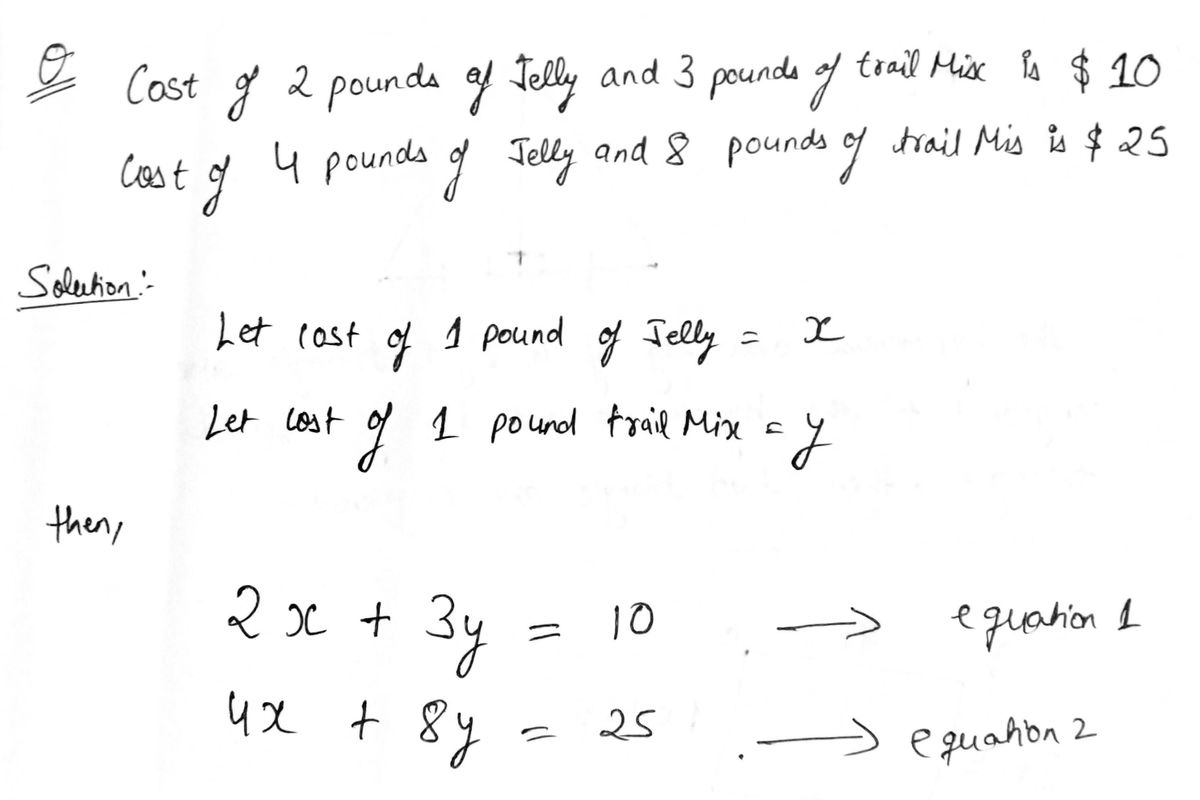 Q Cost of 2 pounds of Jelly and 3 pounds of trail Mix is $ 10
Cost of 4 pounds of Jelly and 8 pounds of trail Mis is $ 25
Solution:-
Let cost of 1 pound of Jelly = x
Let cost of 1 pound trail Mix = y
then,
2x + 3y = 10 → equation 1
4x + 8y = 25 → equation 2